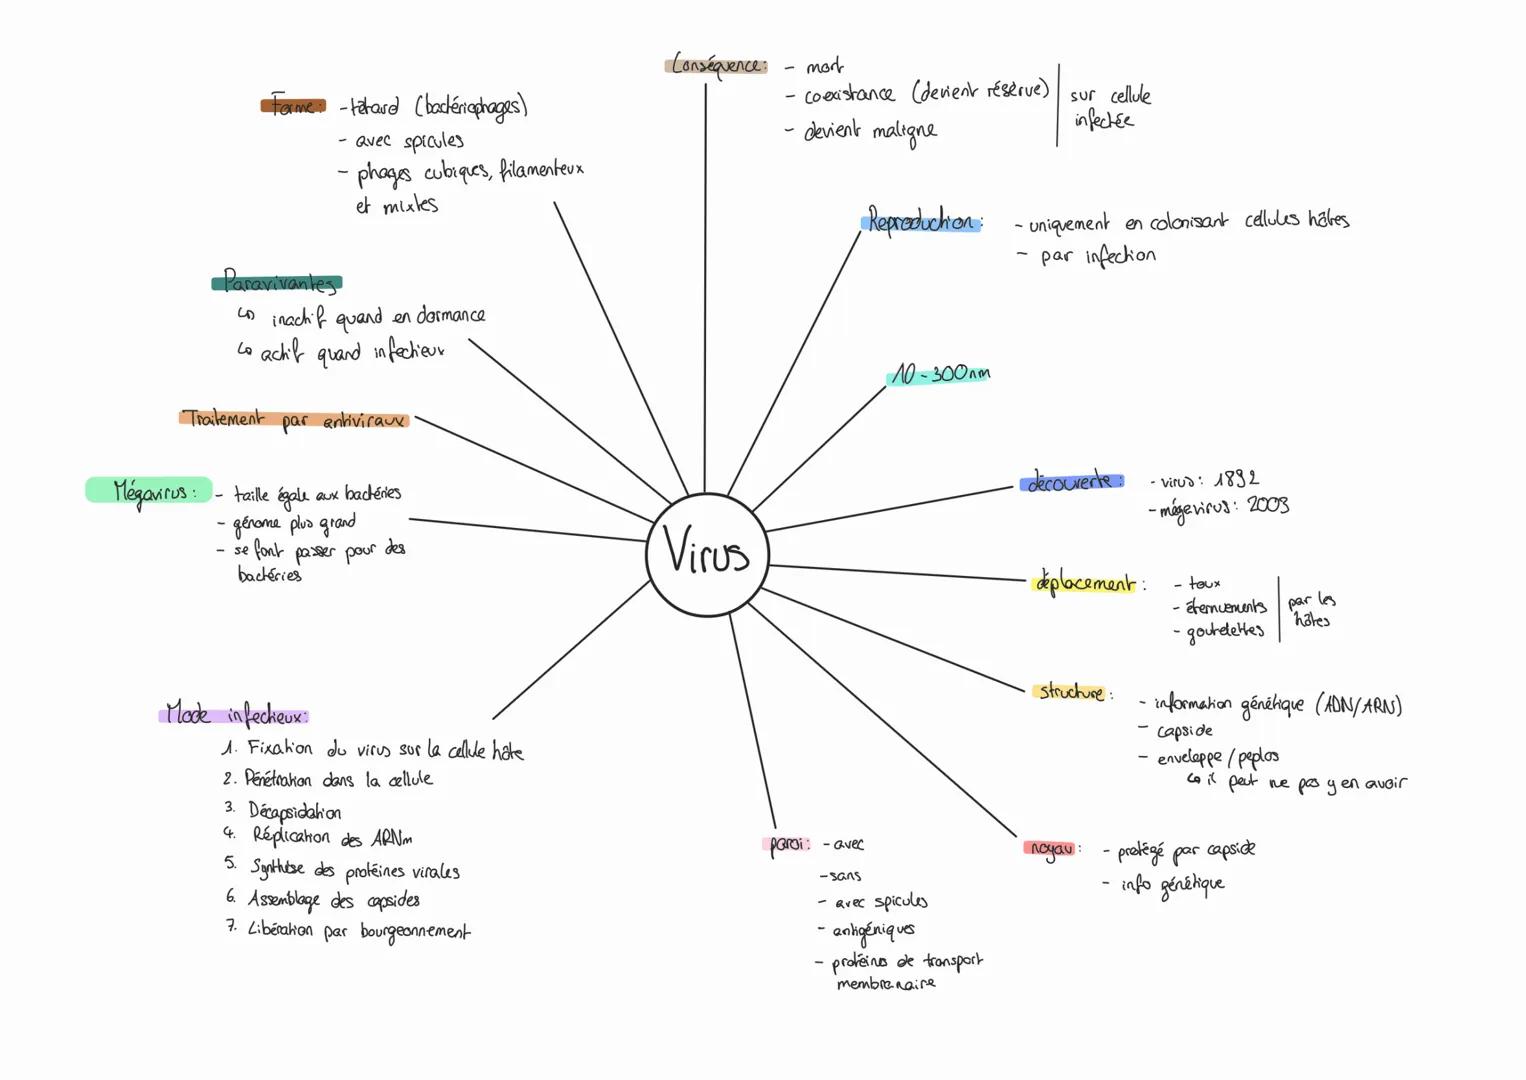 Conséquence:
- mort
- coexistance (devient réserve)
- devient maligne
sur cellule
infectée
Forme:
- têtard (bactériophages)
- avec spicules
- phages cubiques, filamenteux
et mixtes
Reproduction:
- uniquement en colonisant cellules hôtes
- par infection
Paravivantes
↳ inactif quand en dormance
↳ actif quand infectieux
10-300nm
Traitement par antiviraux
Mégavirus:
- taille égale aux bactéries
- génome plus grand
- se font passer pour des
bactéries
découverte:
- virus: 1892
- mégevirus: 2003
Virus
déplacement:
- toux
- éternuements
- goutelettes
par les
hôtes
structure:
- information génétique (ADN/ARN)
- capside
- enveloppe/peplos
↳ il peut ne pas y en avoir
Mode infectieux:
1. Fixation du virus sur la cellule hôte
2. Pénétration dans la cellule
3. Décapsidation
4. Réplication des ARNm
5. Synthèse des protéines virales
6. Assemblage des capsides
7. Libération par bourgeonnement
paroi:
- avec
- sans
- avec spicules
- antigéniques
- protéines de transport
membranaire
noyau:
- protégé par capside
- info génétique